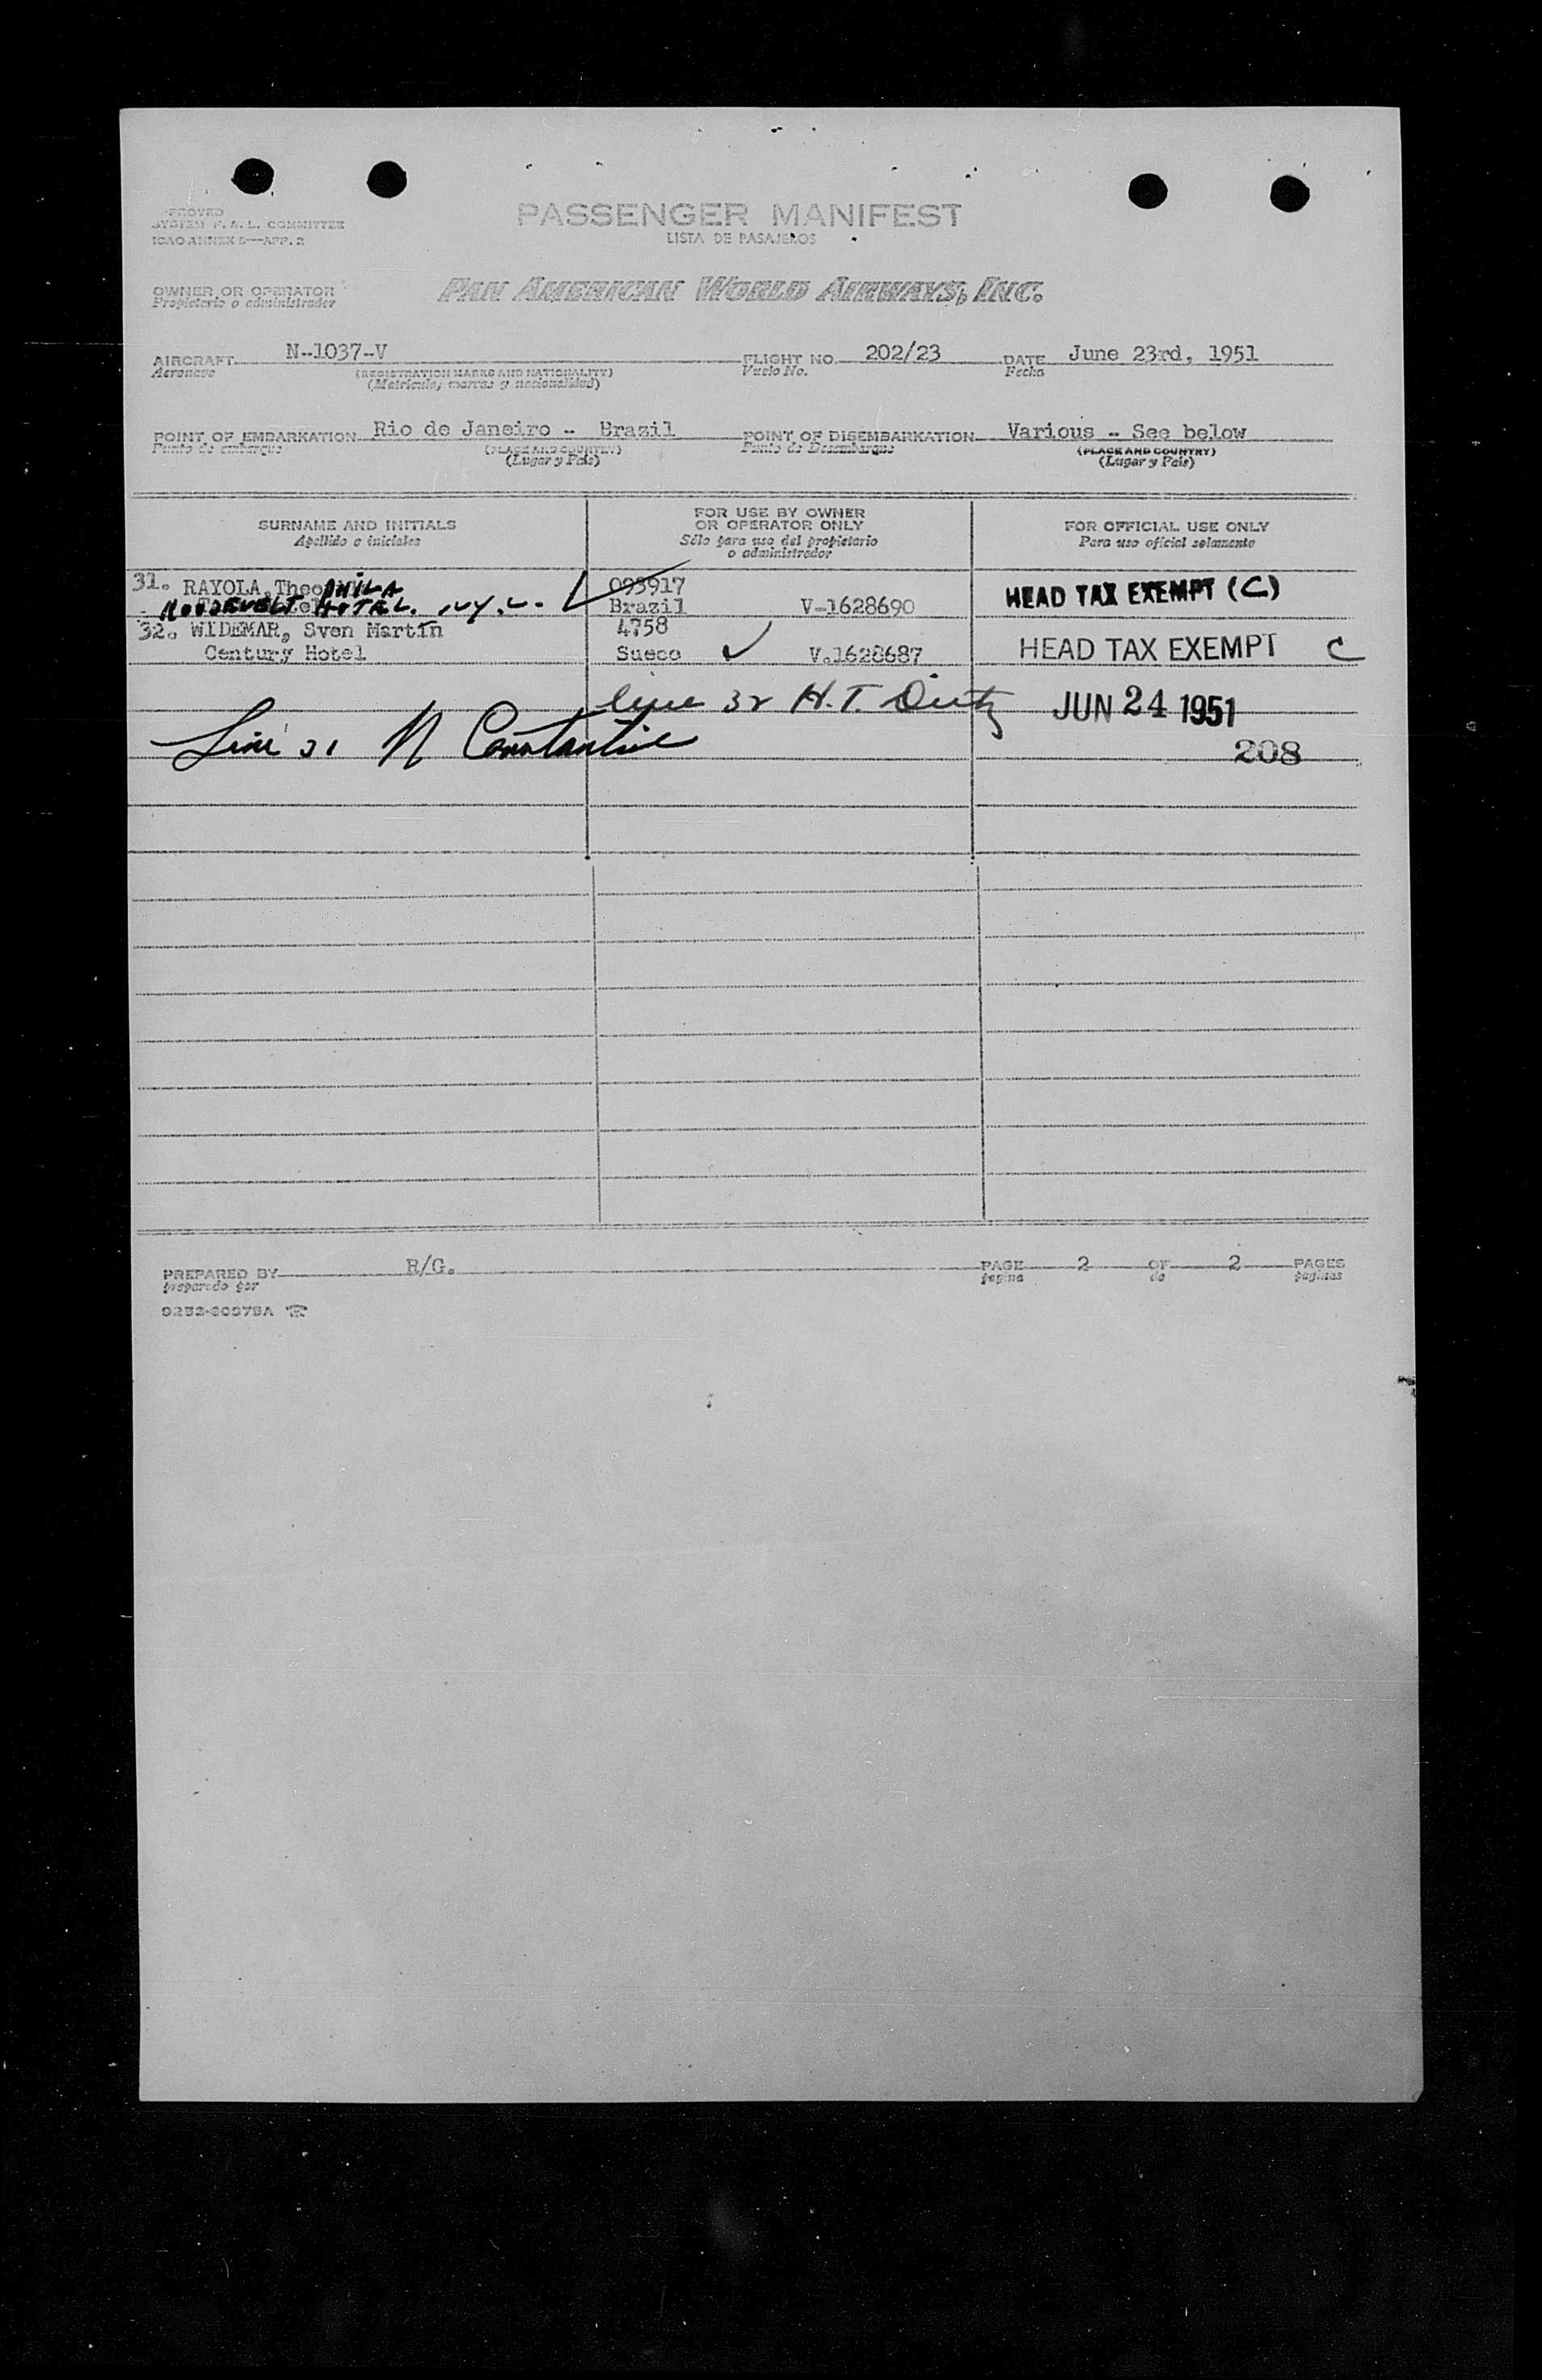 PROVED
SYSTEM F. A. L. COMMITTEE
ICAO ANNEX 9—APP. 2
PASSENGER MANIFEST
LISTA DE PASAJEROS
OWNER OR OPERATOR
Propietario o administrador
PAN AMERICAN WORLD AIRWAYS, INC.
AIRCRAFT N-1037-V FLIGHT NO. 202/23 DATE June 23rd, 1951
Aeronave (REGISTRATION MARKS AND NATIONALITY) Vuelo No. Fecha
(Matricula, marcas y nacionalidad)
POINT OF EMBARKATION Rio de Janeiro - Brazil POINT OF DISEMBARKATION Various - See below
Punto de embarque (PLACE AND COUNTRY) Punto de Desembarque (PLACE AND COUNTRY)
(Lugar y País) (Lugar y País)
SURNAME AND INITIALS
Apellido e iniciales
FOR USE BY OWNER
OR OPERATOR ONLY
Sólo para uso del propietario
o administrador
FOR OFFICIAL USE ONLY
Para uso oficial solamente
31. RAYOLA, Theo PHILA 093917 HEAD TAX EXEMPT (C)
ROOSEVELT HOTEL. N.Y.C. Brazil V-1628690
32. WIDEMAR, Sven Martin 4758
Century Hotel Sueco V.1628687 HEAD TAX EXEMPT C
line 32 H.T. JUN 24 1951
Line 31 N Constantine 208
PREPARED BY R/G. PAGE 2 OF 2 PAGES
preparado por pagina de paginas